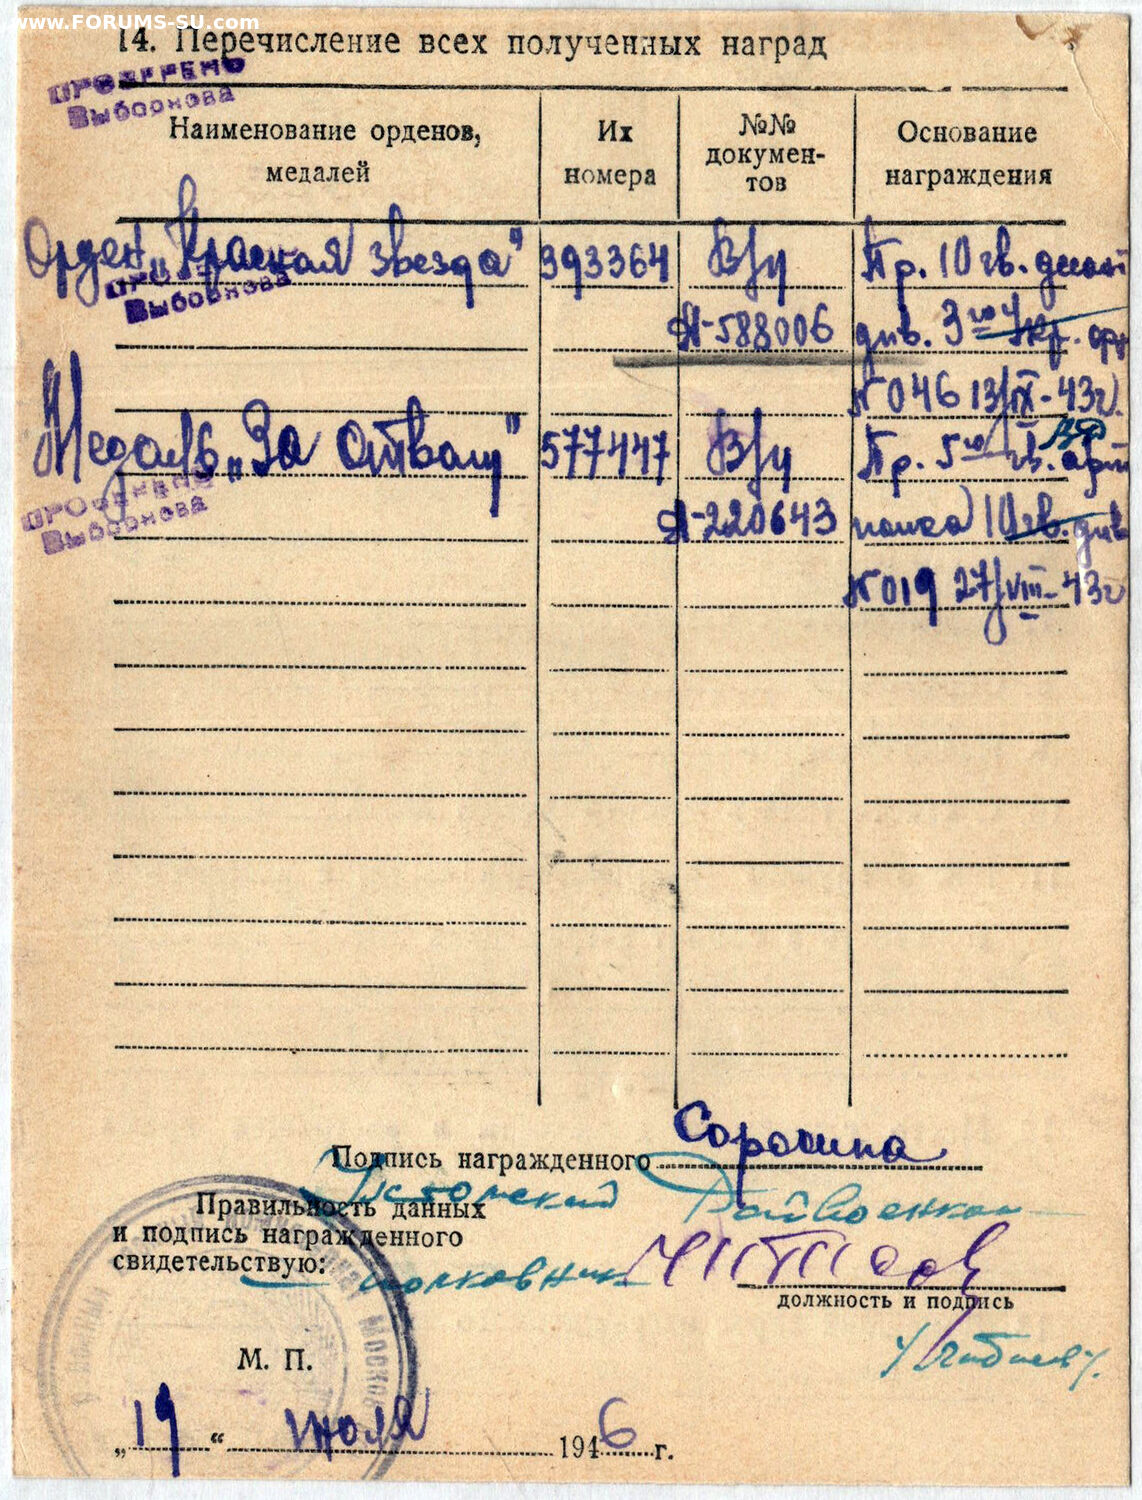 www.FORUMS-SU.com
14. Перечисление всех полученных наград
Выборнова
Наименование орденов, медалей
Их номера
№№ докумен-тов
Основание награждения
Орден „Красная звезда" 393364 В/у Пр. 10 гв.
Выборнова
А-588006 див. 3
№ 046 13/IX-43г.
Медаль „За Отвагу" 577447 В/у Пр. 5го гв. арт
Выборнова
А-220643 полка 10 гв. див
№ 019 27/VIII-43г
Подпись награжденного Сорокина
Правильность данных
и подпись награжденного
свидетельствую:
Райвоенком
полковник
должность и подпись
М. П.
„19" июля 1946 г.